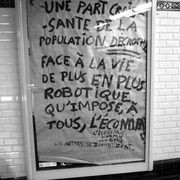 -UNE PART CROIS-
-SANTE DE LA
POPULATION DÉCROCHE
FACE À LA VIE
DE PLUS EN PLUS
ROBOTIQUE
QU'IMPOSE, À
TOUS, L'ÉCONOMIE
LES AUTRES SE